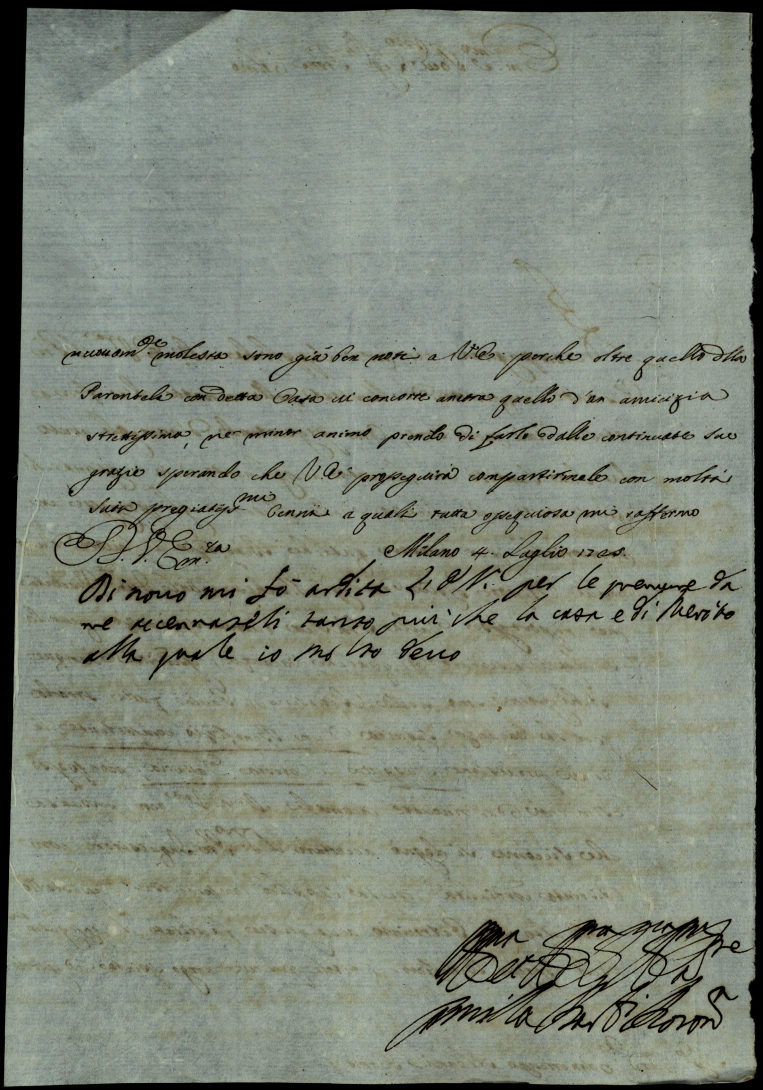 nuovam.te molesta sono già ben noti a V.E. perche oltre quello della
Parentela con detta Casa vi concorre ancora quello d'un amicizia
strettissima, ne minor animo prendo di farlo dalle continuate sue
grazie sperando che V.E. proseguirà compartirmele con molti
suoi pregiatis.mi cenni a quali tutta ossequiosa mi raffermo
D. V. Em.za Milano 4. Luglio
Di novo mi fò ardita di V. per le premure da
me accennateli tanto più che la casa e di Merito
alla quale io molto devo